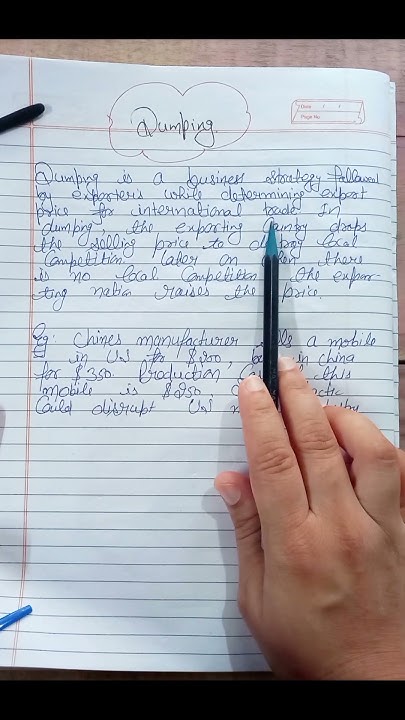 Dumping.
Date / /
Page No
Dumping is a business strategy followed
by exporters while determining export
price for international trade In
dumping, the exporting Country drops
the selling price to local
Competition. Later on when there
is no local Competition the expor-
ting nation raises the price.
Eg: Chines manufacturer a mobile
in US for $200, in china
for $350. Production this
mobile is $250.
Could disrupt US